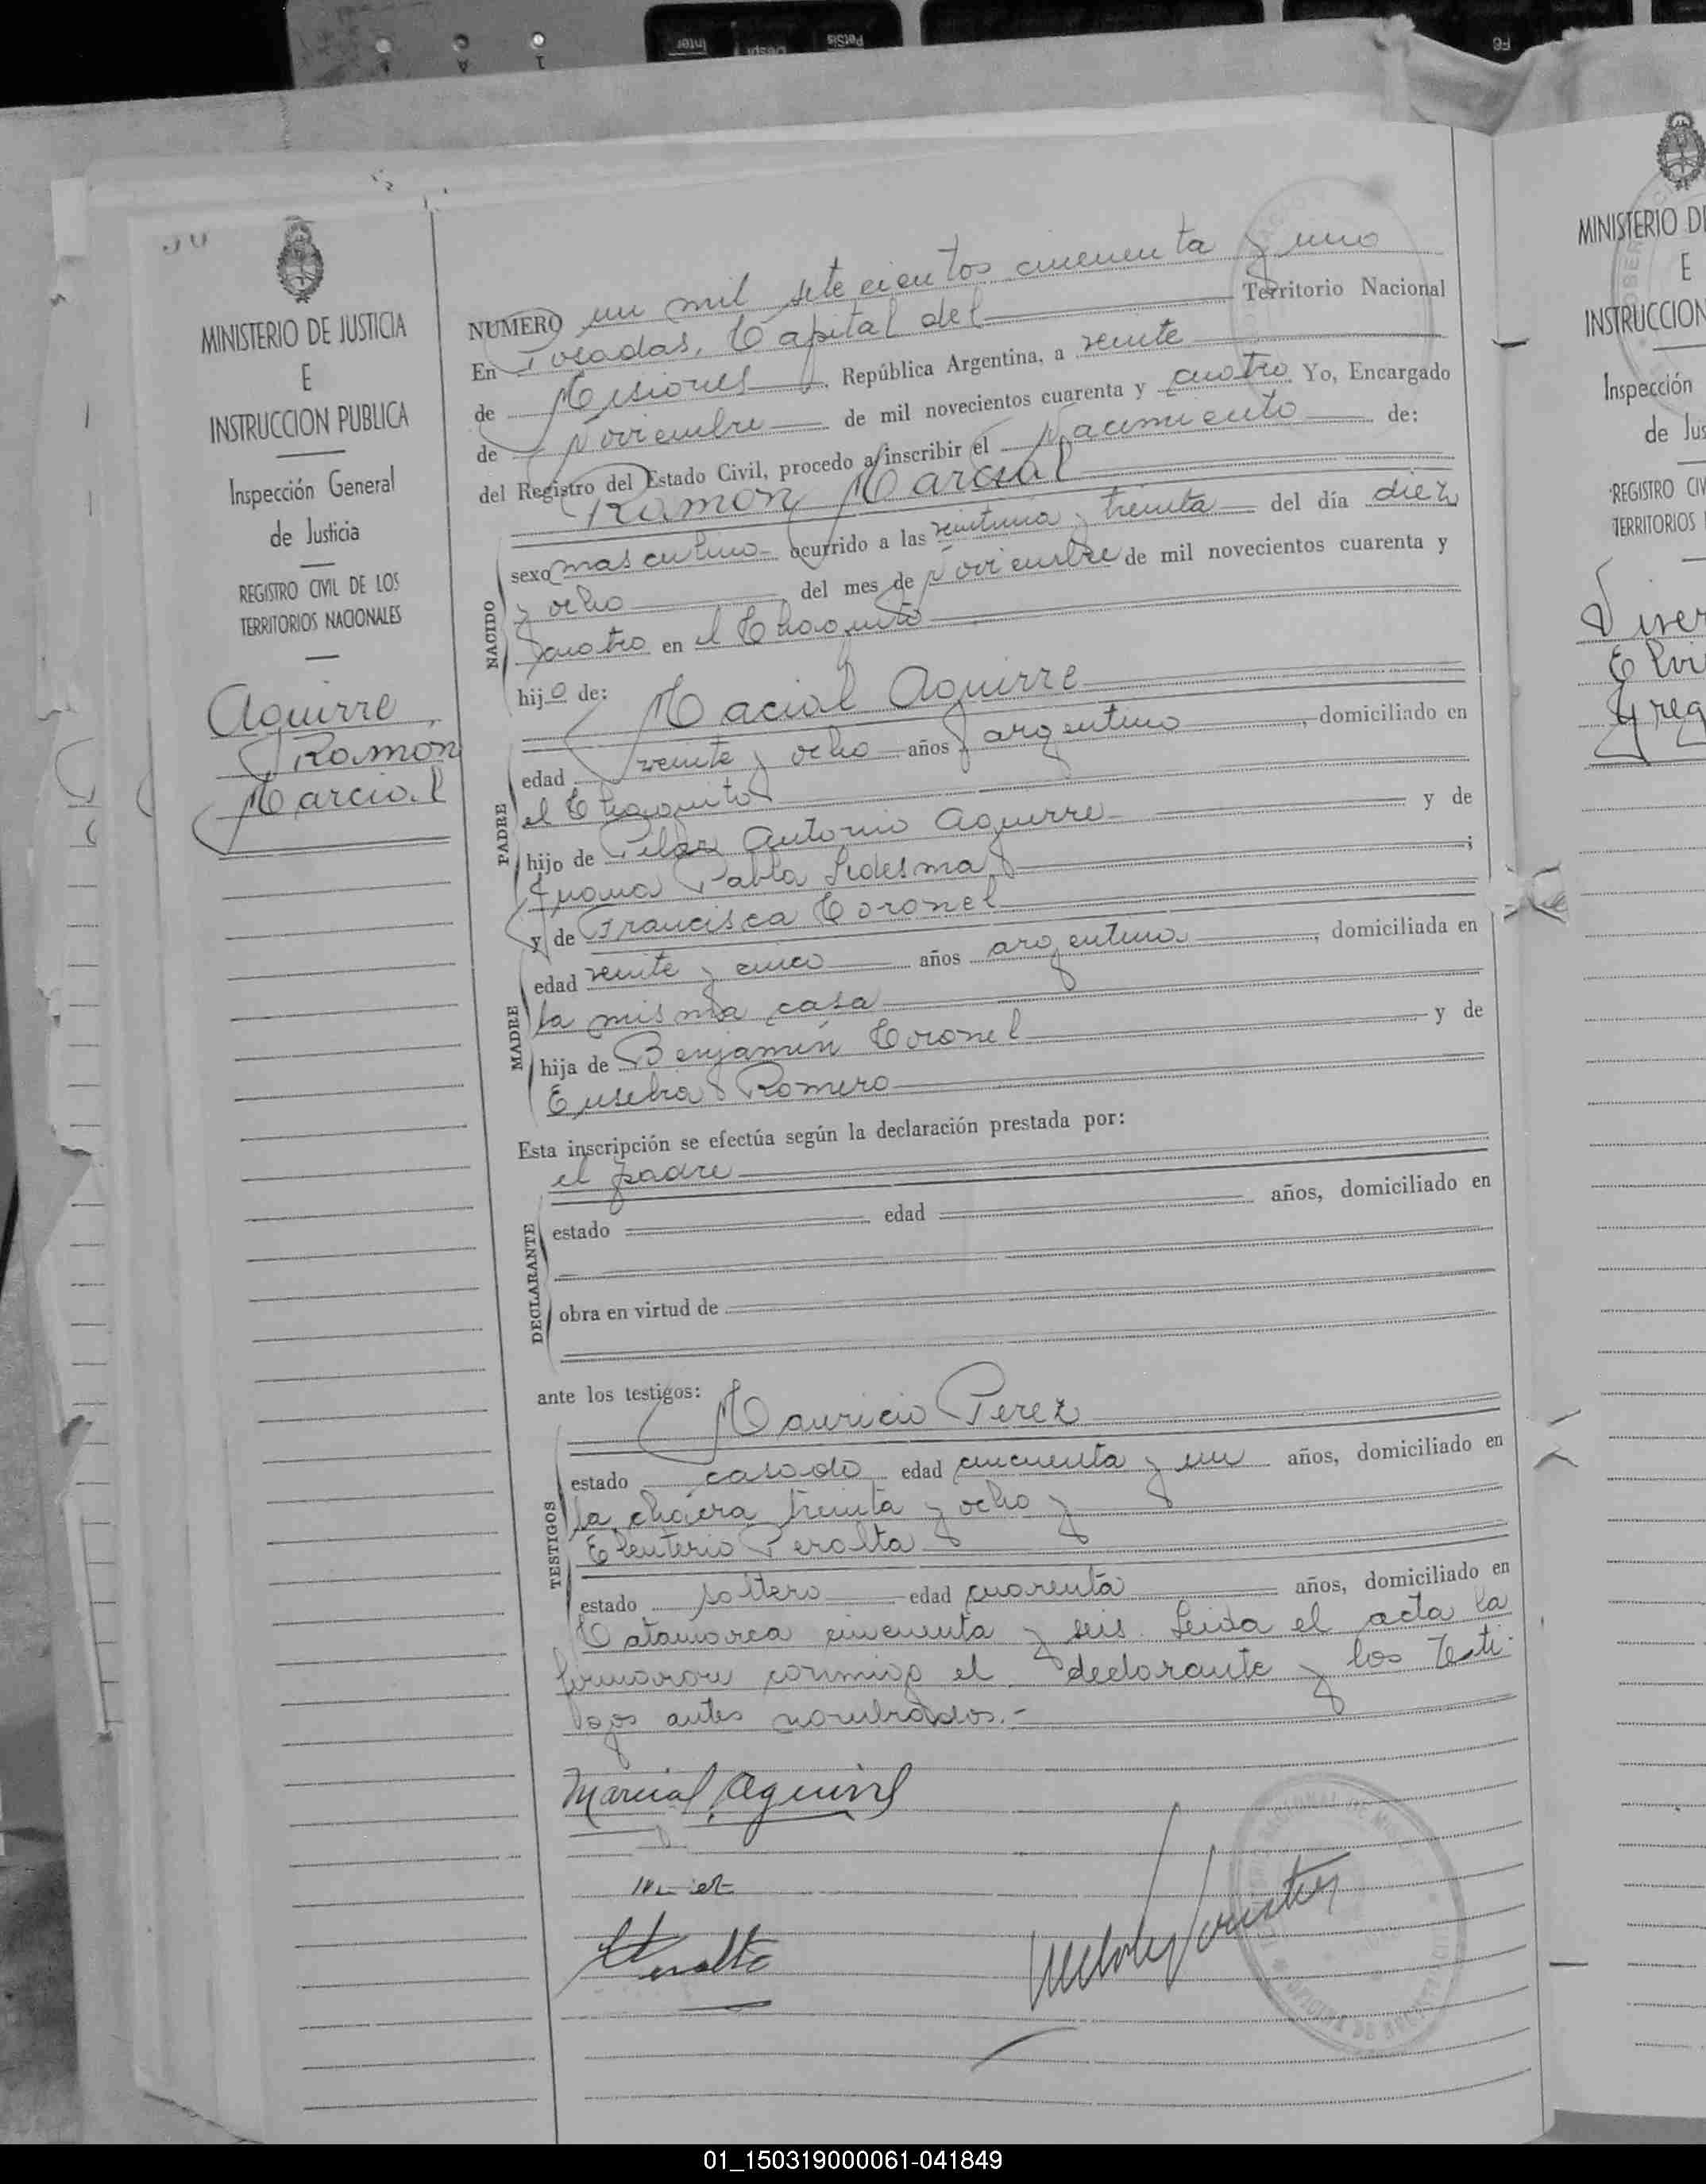 MINISTERIO DE JUSTICIA
E
INSTRUCCION PUBLICA
Inspección General
de Justicia
REGISTRO CIVIL DE LOS
TERRITORIOS NACIONALES
Aguirre
Ramón
Marcial
NUMERO un mil setecientos cincuenta y uno
En Posadas, Capital del Territorio Nacional
de Misiones, República Argentina, a veinte
de Noviembre de mil novecientos cuarenta y cuatro Yo, Encargado
del Registro del Estado Civil, procedo a inscribir el Nacimiento de:
Ramón Marcial
NACIDO
sexo masculino ocurrido a las veintiuna y treinta del día diez
y ocho del mes de Noviembre de mil novecientos cuarenta y
cuatro en el Chaquito
hijo de: Macial Aguirre
PADRE
edad veinte y ocho años argentino, domiciliado en
el Chaquito
hijo de Pilar Antonio Aguirre y de
Juana Pabla Ledesma;
y de Francisca Coronel
MADRE
edad veinte y cinco años argentina, domiciliada en
la misma casa
hija de Benjamín Coronel y de
Eusebia Romero
Esta inscripción se efectúa según la declaración prestada por:
el padre
DECLARANTE
estado edad años, domiciliado en
obra en virtud de
ante los testigos: Mauricio Perez
TESTIGOS
estado casado edad cincuenta y un años, domiciliado en
la chacra treinta y ocho y
Eleuterio Peralta
estado soltero edad cuarenta años, domiciliado en
Catamarca cincuenta y seis. Leida el acta la
firmaron conmigo el declarante y los testi-
gos antes nombrados.-
Marcial Aguirre
Peralta
MINISTERIO DE
E
INSTRUCCION
Inspección
de Jus
REGISTRO CIV
TERRITORIOS
Elvi
Greg
01_150319000061-041849